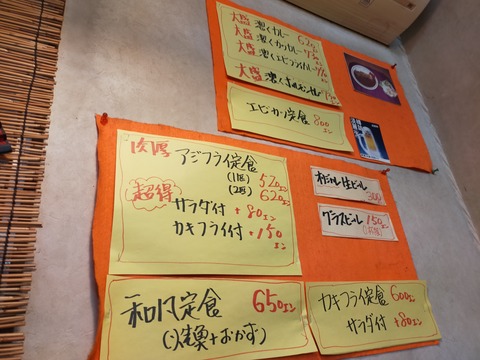 大盛 濃くカレー 620
大盛 濃くカツカレー
大盛 濃くエビフライカレー
大盛
エビカツ定食 800エン
肉厚 アジフライ定食
(1匹) 520エン
超得 (2匹) 620エン
サラダ付 +80エン
カキフライ付 +150エン
生ビール 300
グラスビール 150
和風定食 650エン
(焼魚+おかず)
カキフライ定食 600エン
サラダ付 +80エン